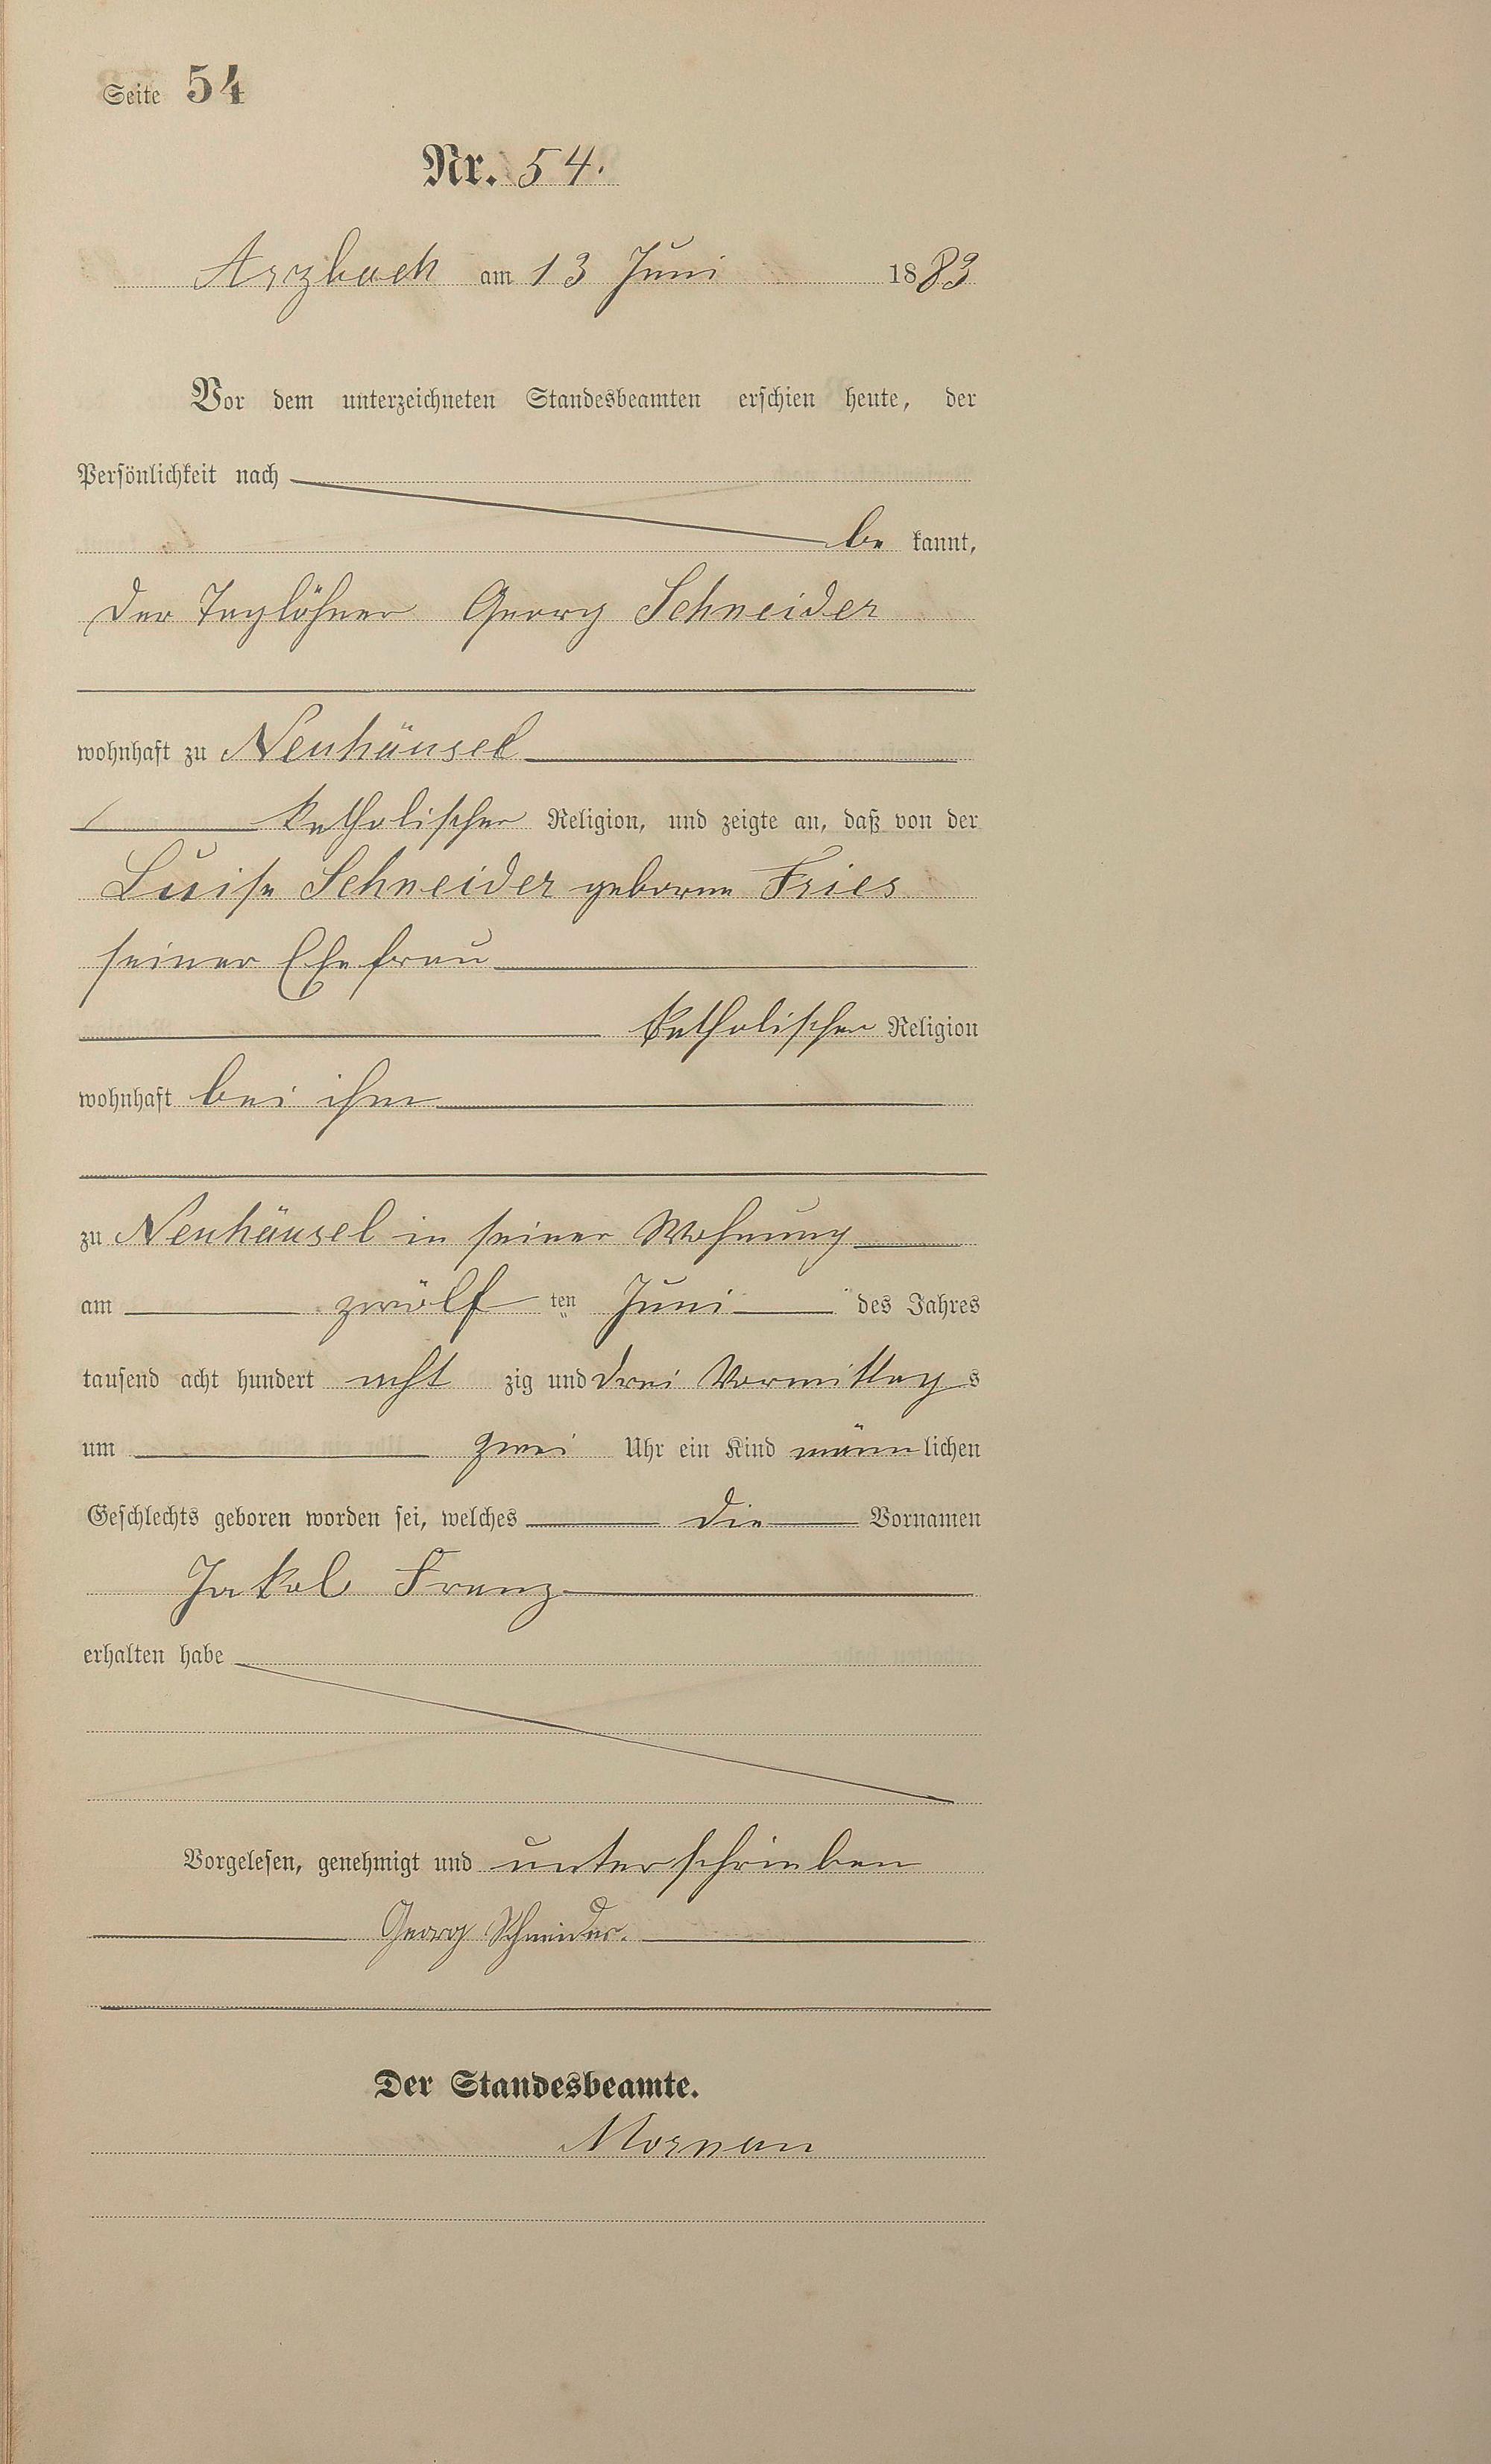 Seite 54
Nr. 54.
Arzbach am 13 Juni 1883
Vor dem unterzeichneten Standesbeamten erschien heute, der
Persönlichkeit nach
be kannt,
der Taglöhner Georg Schneider
wohnhaft zu Neuhäusel
katholischer Religion, und zeigte an, daß von der
Luise Schneider geborne Fries
seiner Ehefrau
katholischer Religion
wohnhaft bei ihm
zu Neuhäusel in seiner Wohnung
am zwölf ten Juni des Jahres
tausend acht hundert acht zig und drei Vormittag s
um zwei Uhr ein Kind männ lichen
Geschlechts geboren worden sei, welches die Vornamen
Jakob Franz
erhalten habe
Vorgelesen, genehmigt und unterschrieben
Georg Schneider.
Der Standesbeamte.